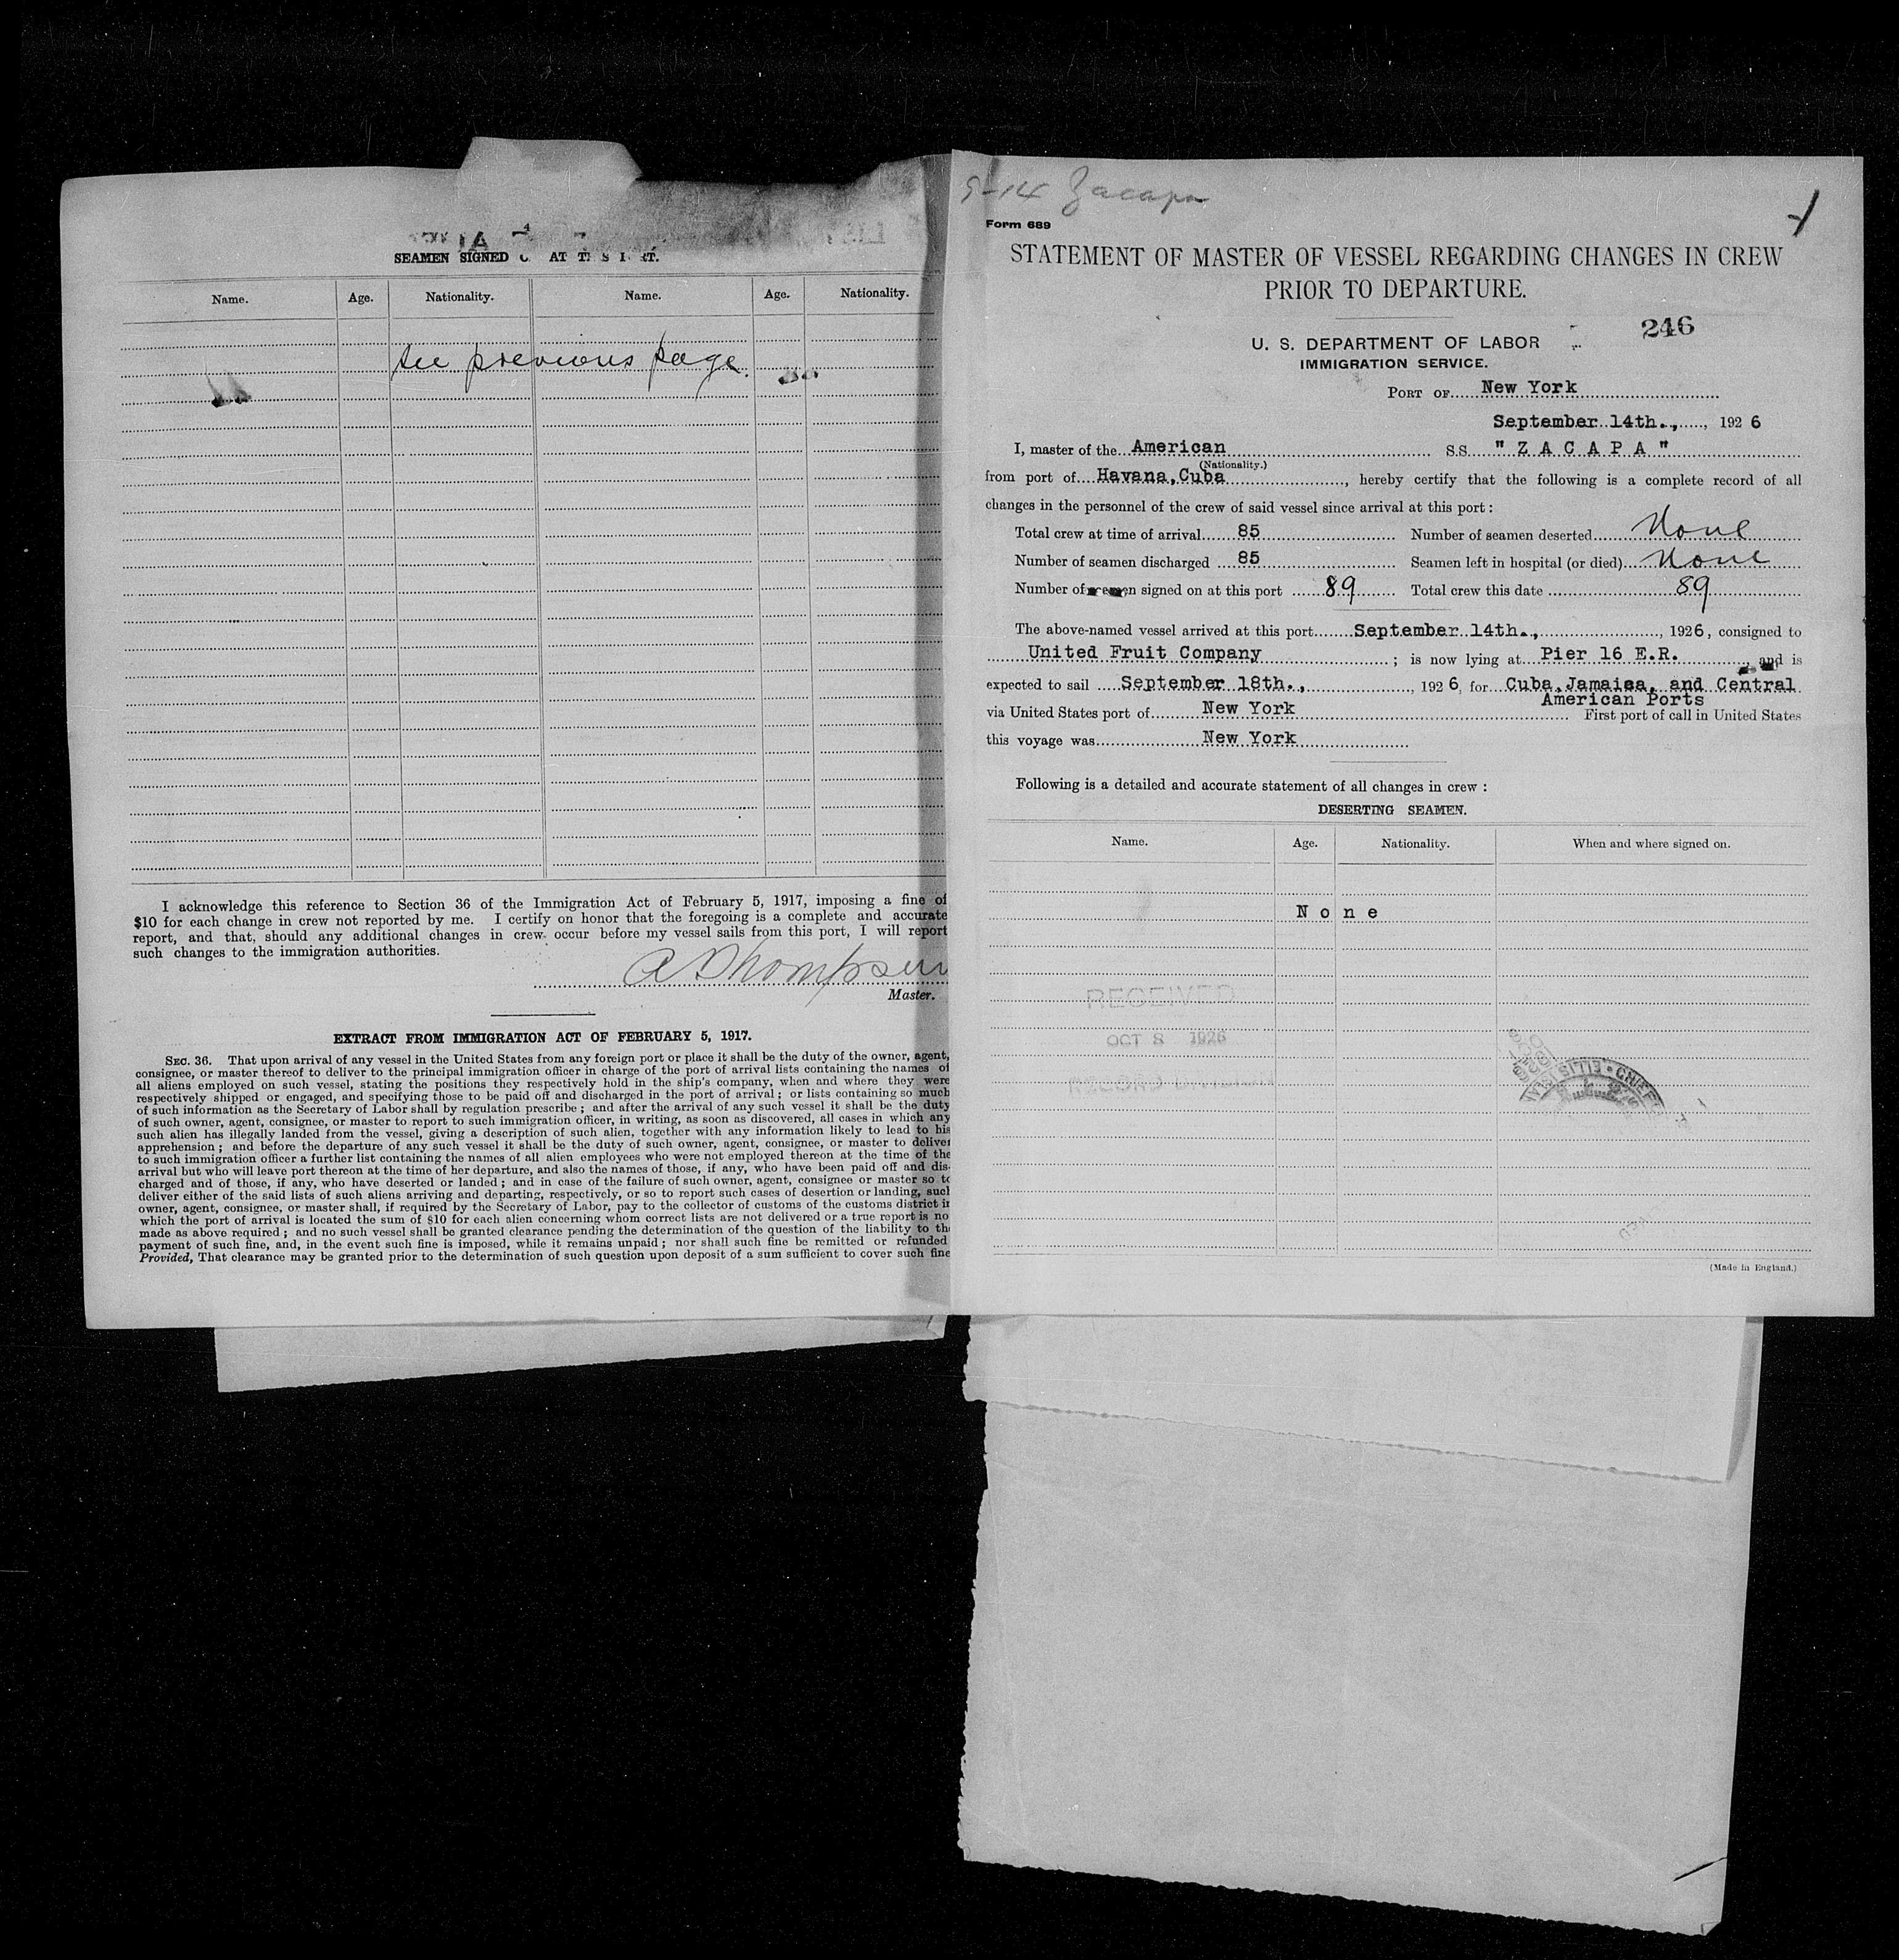 SEAMEN SIGNED AT
Name. Age. Nationality. Name. Age. Nationality.
See previous page.
I acknowledge this reference to Section 36 of the Immigration Act of February 5, 1917, imposing a fine of
$10 for each change in crew not reported by me. I certify on honor that the foregoing is a complete and accurate
report, and that, should any additional changes in crew occur before my vessel sails from this port, I will report
such changes to the immigration authorities.
A Thompson
Master.
EXTRACT FROM IMMIGRATION ACT OF FEBRUARY 5, 1917.
SEC. 36. That upon arrival of any vessel in the United States from any foreign port or place it shall be the duty of the owner, agent,
consignee, or master thereof to deliver to the principal immigration officer in charge of the port of arrival lists containing the names of
all aliens employed on such vessel, stating the positions they respectively hold in the ship's company, when and where they were
respectively shipped or engaged, and specifying those to be paid off and discharged in the port of arrival; or lists containing so much
of such information as the Secretary of Labor shall by regulation prescribe; and after the arrival of any such vessel it shall be the duty
of such owner, agent, consignee, or master to report to such immigration officer, in writing, as soon as discovered, all cases in which any
such alien has illegally landed from the vessel, giving a description of such alien, together with any information likely to lead to his
apprehension; and before the departure of any such vessel it shall be the duty of such owner, agent, consignee, or master to deliver
to such immigration officer a further list containing the names of all alien employees who were not employed thereon at the time of the
arrival but who will leave port thereon at the time of her departure, and also the names of those, if any, who have been paid off and dis-
charged and of those, if any, who have deserted or landed; and in case of the failure of such owner, agent, consignee or master so to
deliver either of the said lists of such aliens arriving and departing, respectively, or so to report such cases of desertion or landing, such
owner, agent, consignee, or master shall, if required by the Secretary of Labor, pay to the collector of customs of the customs district in
which the port of arrival is located the sum of $10 for each alien concerning whom correct lists are not delivered or a true report is no
made as above required; and no such vessel shall be granted clearance pending the determination of the question of the liability to the
payment of such fine, and, in the event such fine is imposed, while it remains unpaid; nor shall such fine be remitted or refunded
Provided, That clearance may be granted prior to the determination of such question upon deposit of a sum sufficient to cover such fine
9-14 Zacapa
Form 689
STATEMENT OF MASTER OF VESSEL REGARDING CHANGES IN CREW
PRIOR TO DEPARTURE.
246
U. S. DEPARTMENT OF LABOR
IMMIGRATION SERVICE.
PORT OF New York
September 14th., 1926
I, master of the American SS. "ZACAPA"
(Nationality.)
from port of Havana, Cuba, hereby certify that the following is a complete record of all
changes in the personnel of the crew of said vessel since arrival at this port:
Total crew at time of arrival 85 Number of seamen deserted None
Number of seamen discharged 85 Seamen left in hospital (or died) None
Number of seamen signed on at this port 89 Total crew this date 89
The above-named vessel arrived at this port September 14th., 1926, consigned to
United Fruit Company; is now lying at Pier 16 E.R. and is
expected to sail September 18th., 1926, for Cuba, Jamaica, and Central
American Ports
via United States port of New York First port of call in United States
this voyage was New York
Following is a detailed and accurate statement of all changes in crew:
DESERTING SEAMEN.
Name. Age. Nationality. When and where signed on.
None
RECEIVED
OCT 8 1926
RECORD DIVISION
(Made in England.)